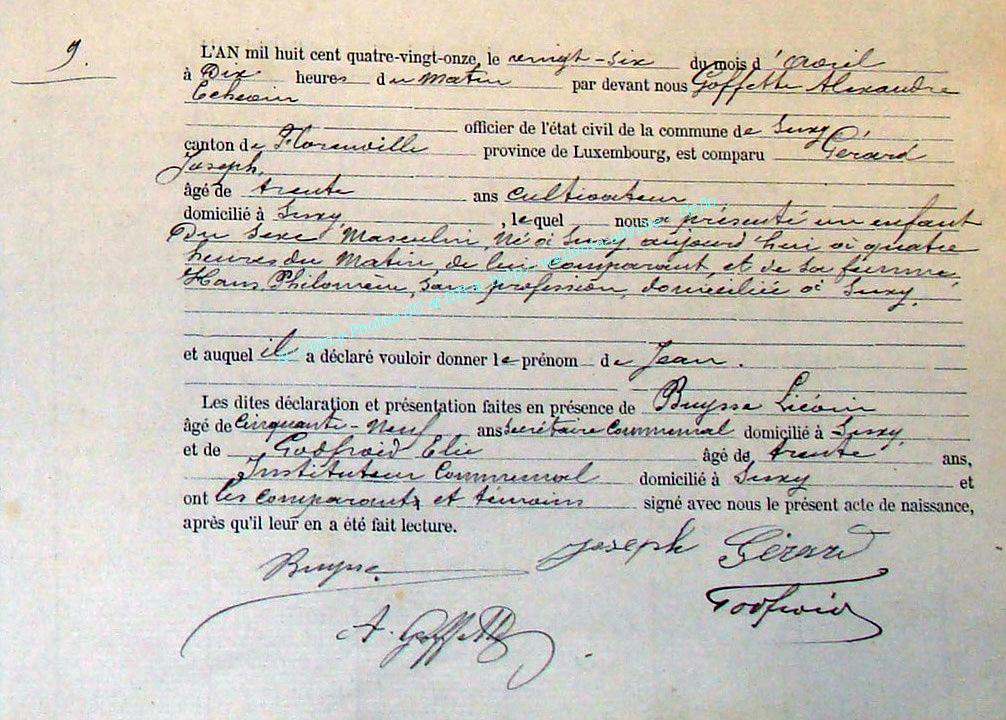 9.
L'AN mil huit cent quatre-vingt-onze, le vingt-six du mois d'Avril
à Dix heures du Matin par devant nous Goffette Alexandre
Echevin
officier de l'état civil de la commune de Suxy
canton de Florenville province de Luxembourg, est comparu Gérard
Joseph,
âgé de trente ans cultivateur
domicilié à Suxy, lequel nous a présenté un enfant
Du sexe Masculin, Né à Suxy aujourd'hui à quatre
heures du Matin, de lui comparant, et de sa femme,
Hans, sans profession, domiciliée à Suxy.
et auquel il a déclaré vouloir donner le prénom de Jean.
Les dites déclaration et présentation faites en présence de Buysse Liévin
âgé de Cinquante-Neuf ans Secrétaire Communal domicilié à Suxy,
et de Godfroid Elie âgé de trente ans,
Instituteur Communal domicilié à Suxy et
ont les comparant et témoins signé avec nous le présent acte de naissance,
après qu'il leur en a été fait lecture.
Buysse
Joseph Gérard
Godfroid
A. Goffette